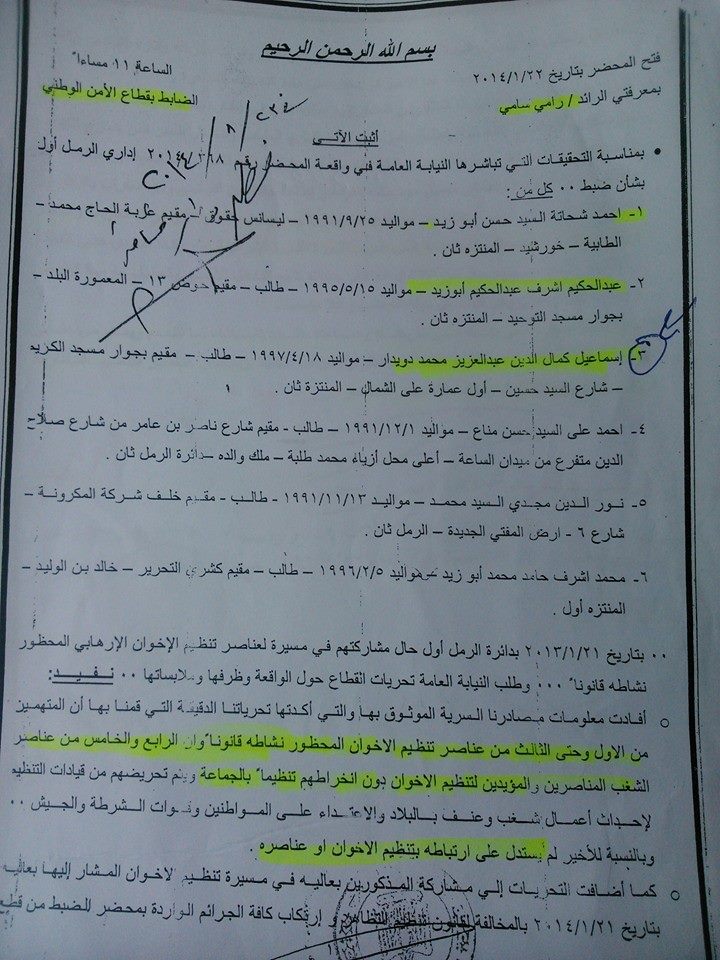 بسم الله الرحمن الرحيم
فتح المحضر بتاريخ ٢٠١٤/١/٢٢ الساعة ١١ مساءاً
بمعرفتي الرائد / رامي سامي الضابط بقطاع الأمن الوطني
أثبت الآتي
• بمناسبة التحقيقات التي تباشرها النيابة العامة في واقعة المحضر رقم إداري الرمل أول
بشأن ضبط ٠٠ كل من :
١- احمد شحاتة السيد حسن أبو زيد – مواليد ١٩٩١/٩/٢٥ – ليسانس حقوق – مقيم عزبة الحاج محمد –
الطابية – خورشيد – المنتزه ثان .
٢- عبدالحكيم اشرف عبدالحكيم أبوزيد – مواليد ١٩٩٥/٥/١٥ – طالب – مقيم حوض ١٣ – المعمورة البلد –
بجوار مسجد التوحيد – المنتزه ثان .
٣- إسماعيل كمال الدين عبدالعزيز محمد دويدار – مواليد ١٩٩٧/٤/١٨ – طالب – مقيم بجوار مسجد الكريم
– شارع السيد حسين – أول عمارة على الشمال – المنتزة ثان .
٤- احمد على السيد حسن مناع – مواليد ١٩٩١/١٢/١ – طالب - مقيم شارع ناصر بن عامر من شارع صلاح
الدين متفرع من ميدان الساعة – أعلى محل أزياء محمد طلبة – ملك والده – دائرة الرمل ثان .
٥- نور الدين مجدي السيد محمد – مواليد ١٩٩١/١١/١٣ - طالب - مقيم خلف شركة المكرونة –
شارع ٦ - ارض المفتي الجديدة – الرمل ثان .
٦- محمد اشرف حامد محمد أبو زيد – مواليد ١٩٩٦/٢/٥ – طالب – مقيم كشري التحرير – خالد بن الوليد –
المنتزه أول .
٠٠ بتاريخ ٢٠١٣/١/٢١ بدائرة الرمل أول حال مشاركتهم في مسيرة لعناصر تنظيم الإخوان الإرهابي المحظور
نشاطه قانوناً ٠٠٠ وطلب النيابة العامة تحريات القطاع حول الواقعة وظرفها وملابساتها ٠٠ نفيد :
○ أفادت معلومات مصادرنا السرية الموثوق بها والتي أكدتها تحرياتنا الدقيقة التي قمنا بها أن المتهمين
من الاول وحتى الثالث من عناصر تنظيم الاخوان المحظور نشاطه قانوناً وان الرابع والخامس من عناصر
الشغب المناصرين والمؤيدين لتنظيم الاخوان دون انخراطهم تنظيماً بالجماعة ويتم تحريضهم من قيادات التنظيم
لإحداث أعمال شغب وعنف بالبلاد والاعتداء على المواطنين وقوات الشرطة والجيش ٠٠
وبالنسبة للأخير لم يستدل على ارتباطه بتنظيم الاخوان او عناصره .
○ كما أضافت التحريات إلي مشاركة المذكورين بعاليه في مسيرة تنظيم الاخوان المشار إليها بعاليه
بتاريخ ٢٠١٤/١/٢١ بالمخالفة لقانون تنظيم التظاهر و إرتكاب كافة الجرائم الواردة بمحضر الضبط من قطع